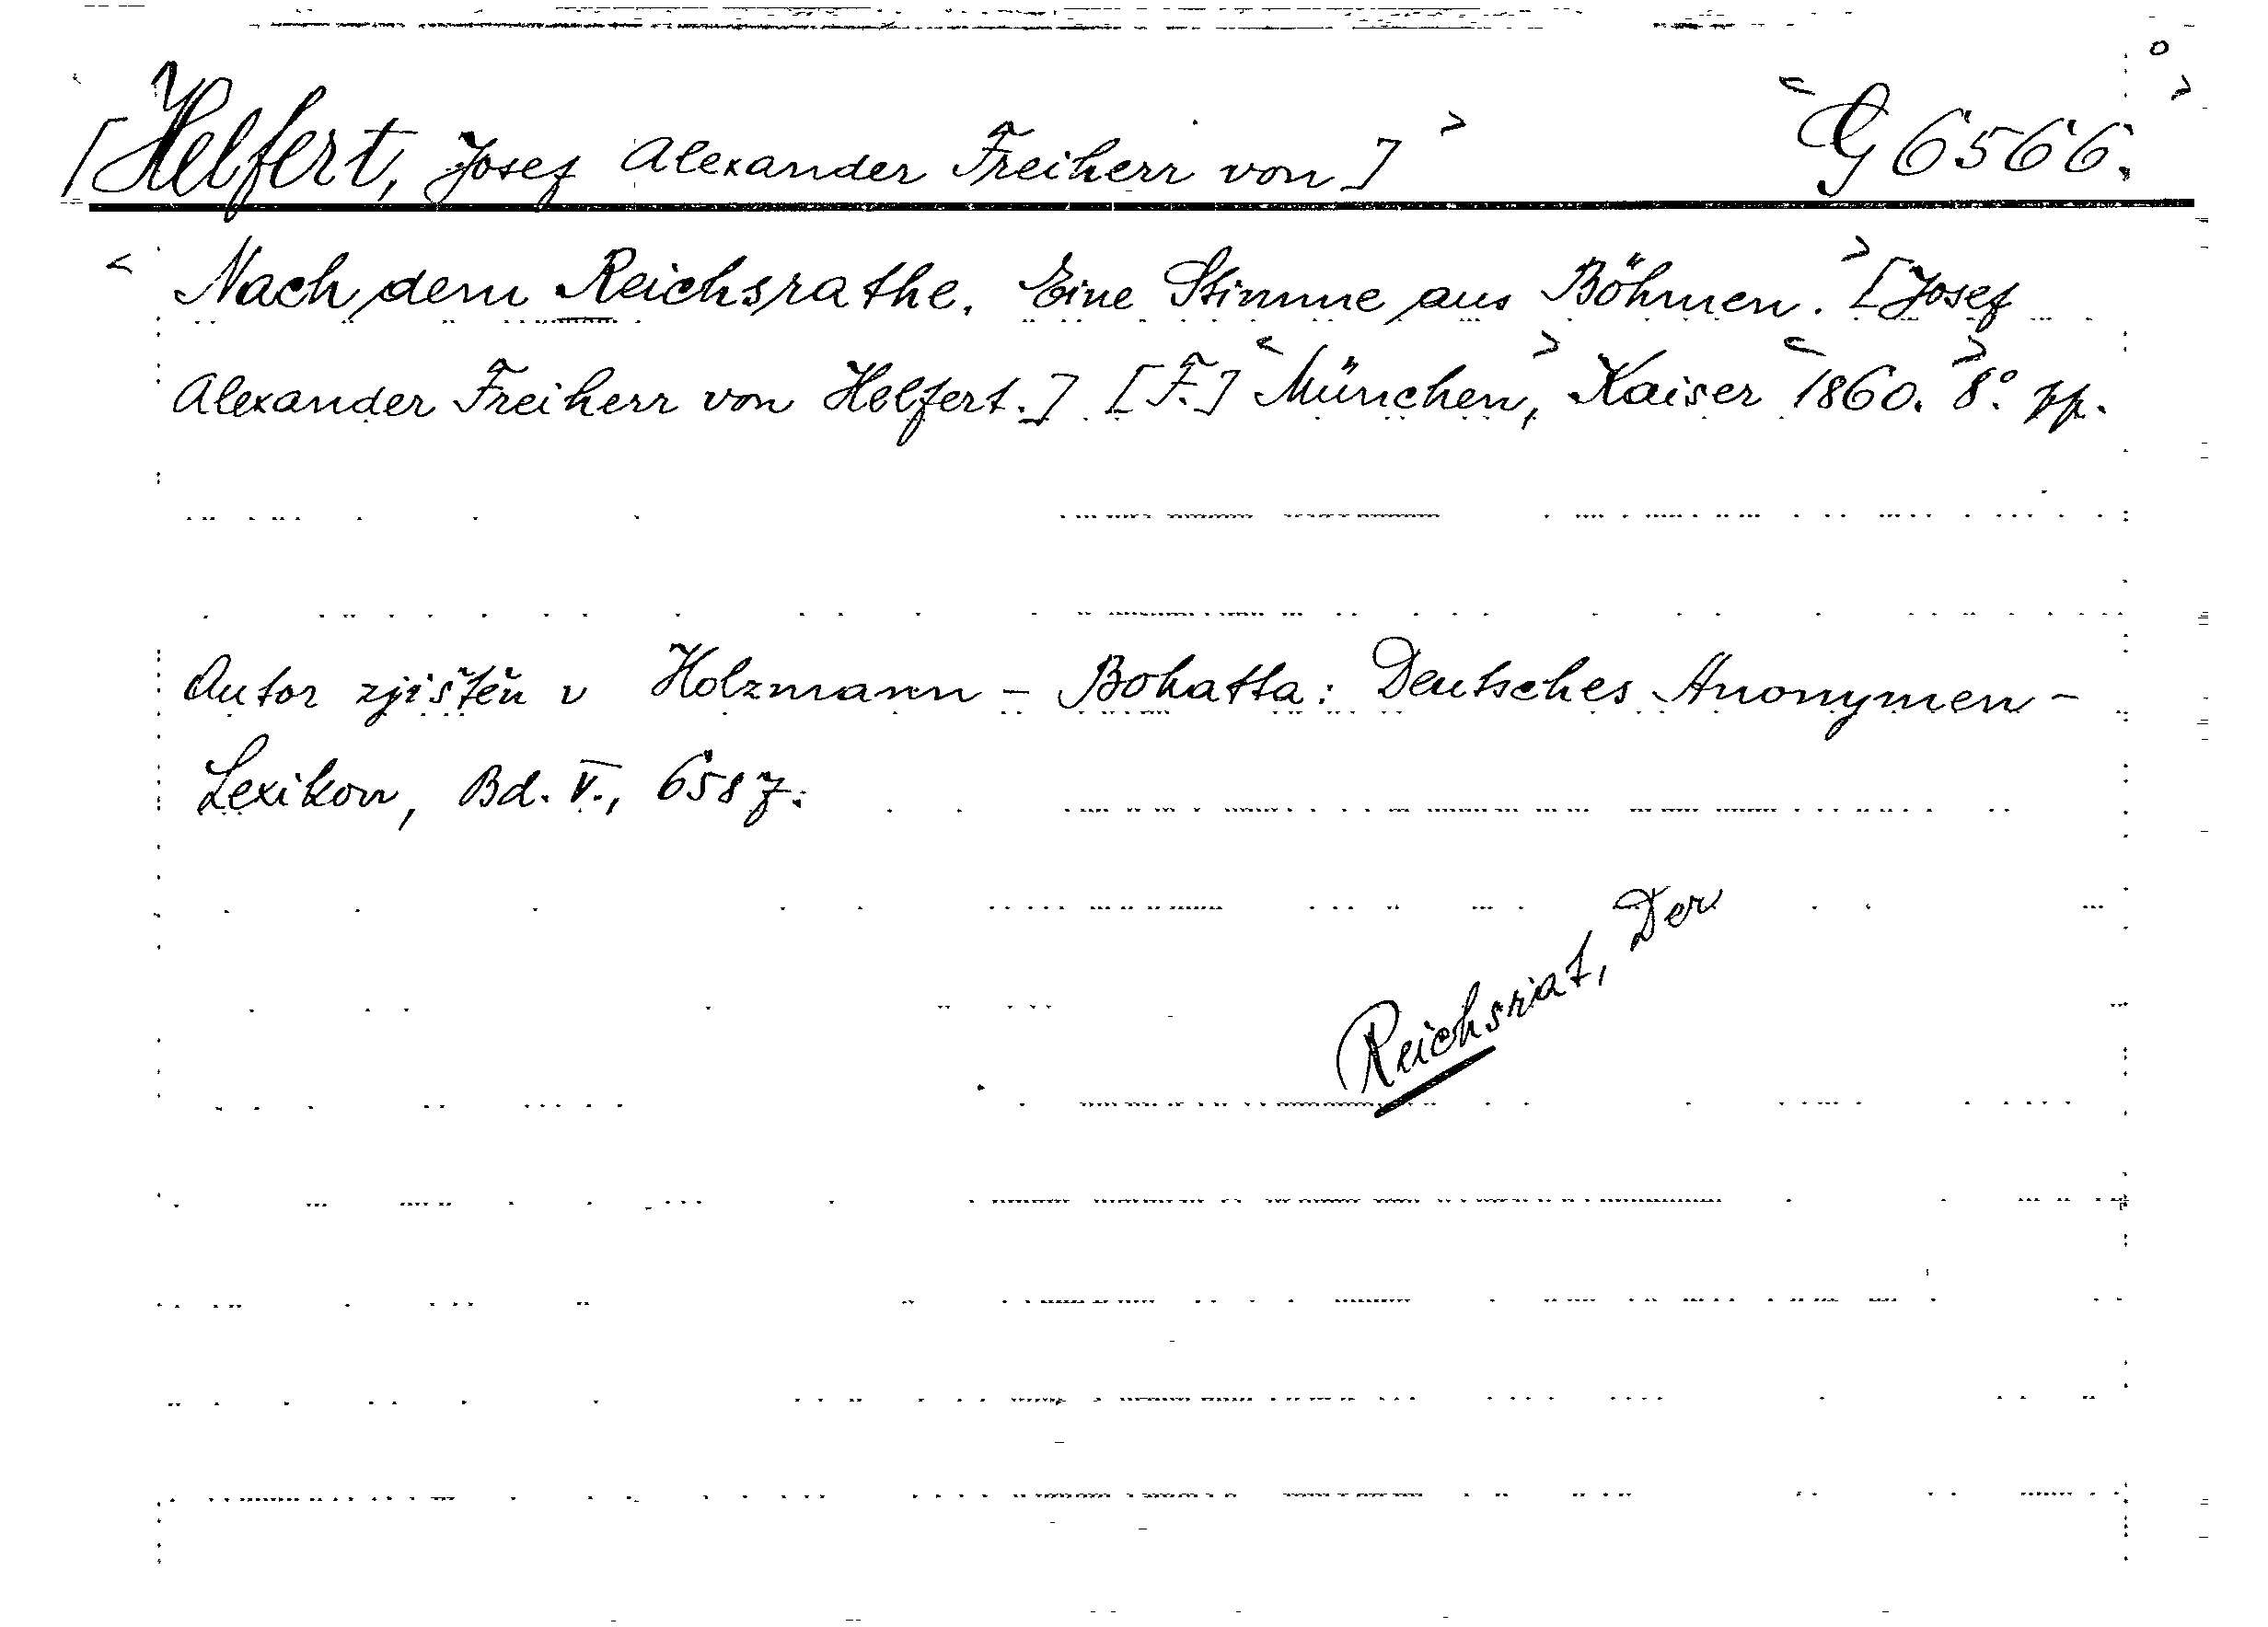 [Helfert, Josef Alexander Freiherr von] G 6566.
Nach dem Reichsrathe. Eine Stimme aus Böhmen. [Josef
Alexander Freiherr von Helfert.] [F.] München, Kaiser 1860. 8°.
Autor zjištěn v Holzmann - Bohatta: Deutsches Anonymen-
Lexikon, Bd. V., 6587.
Reichsrat, Der